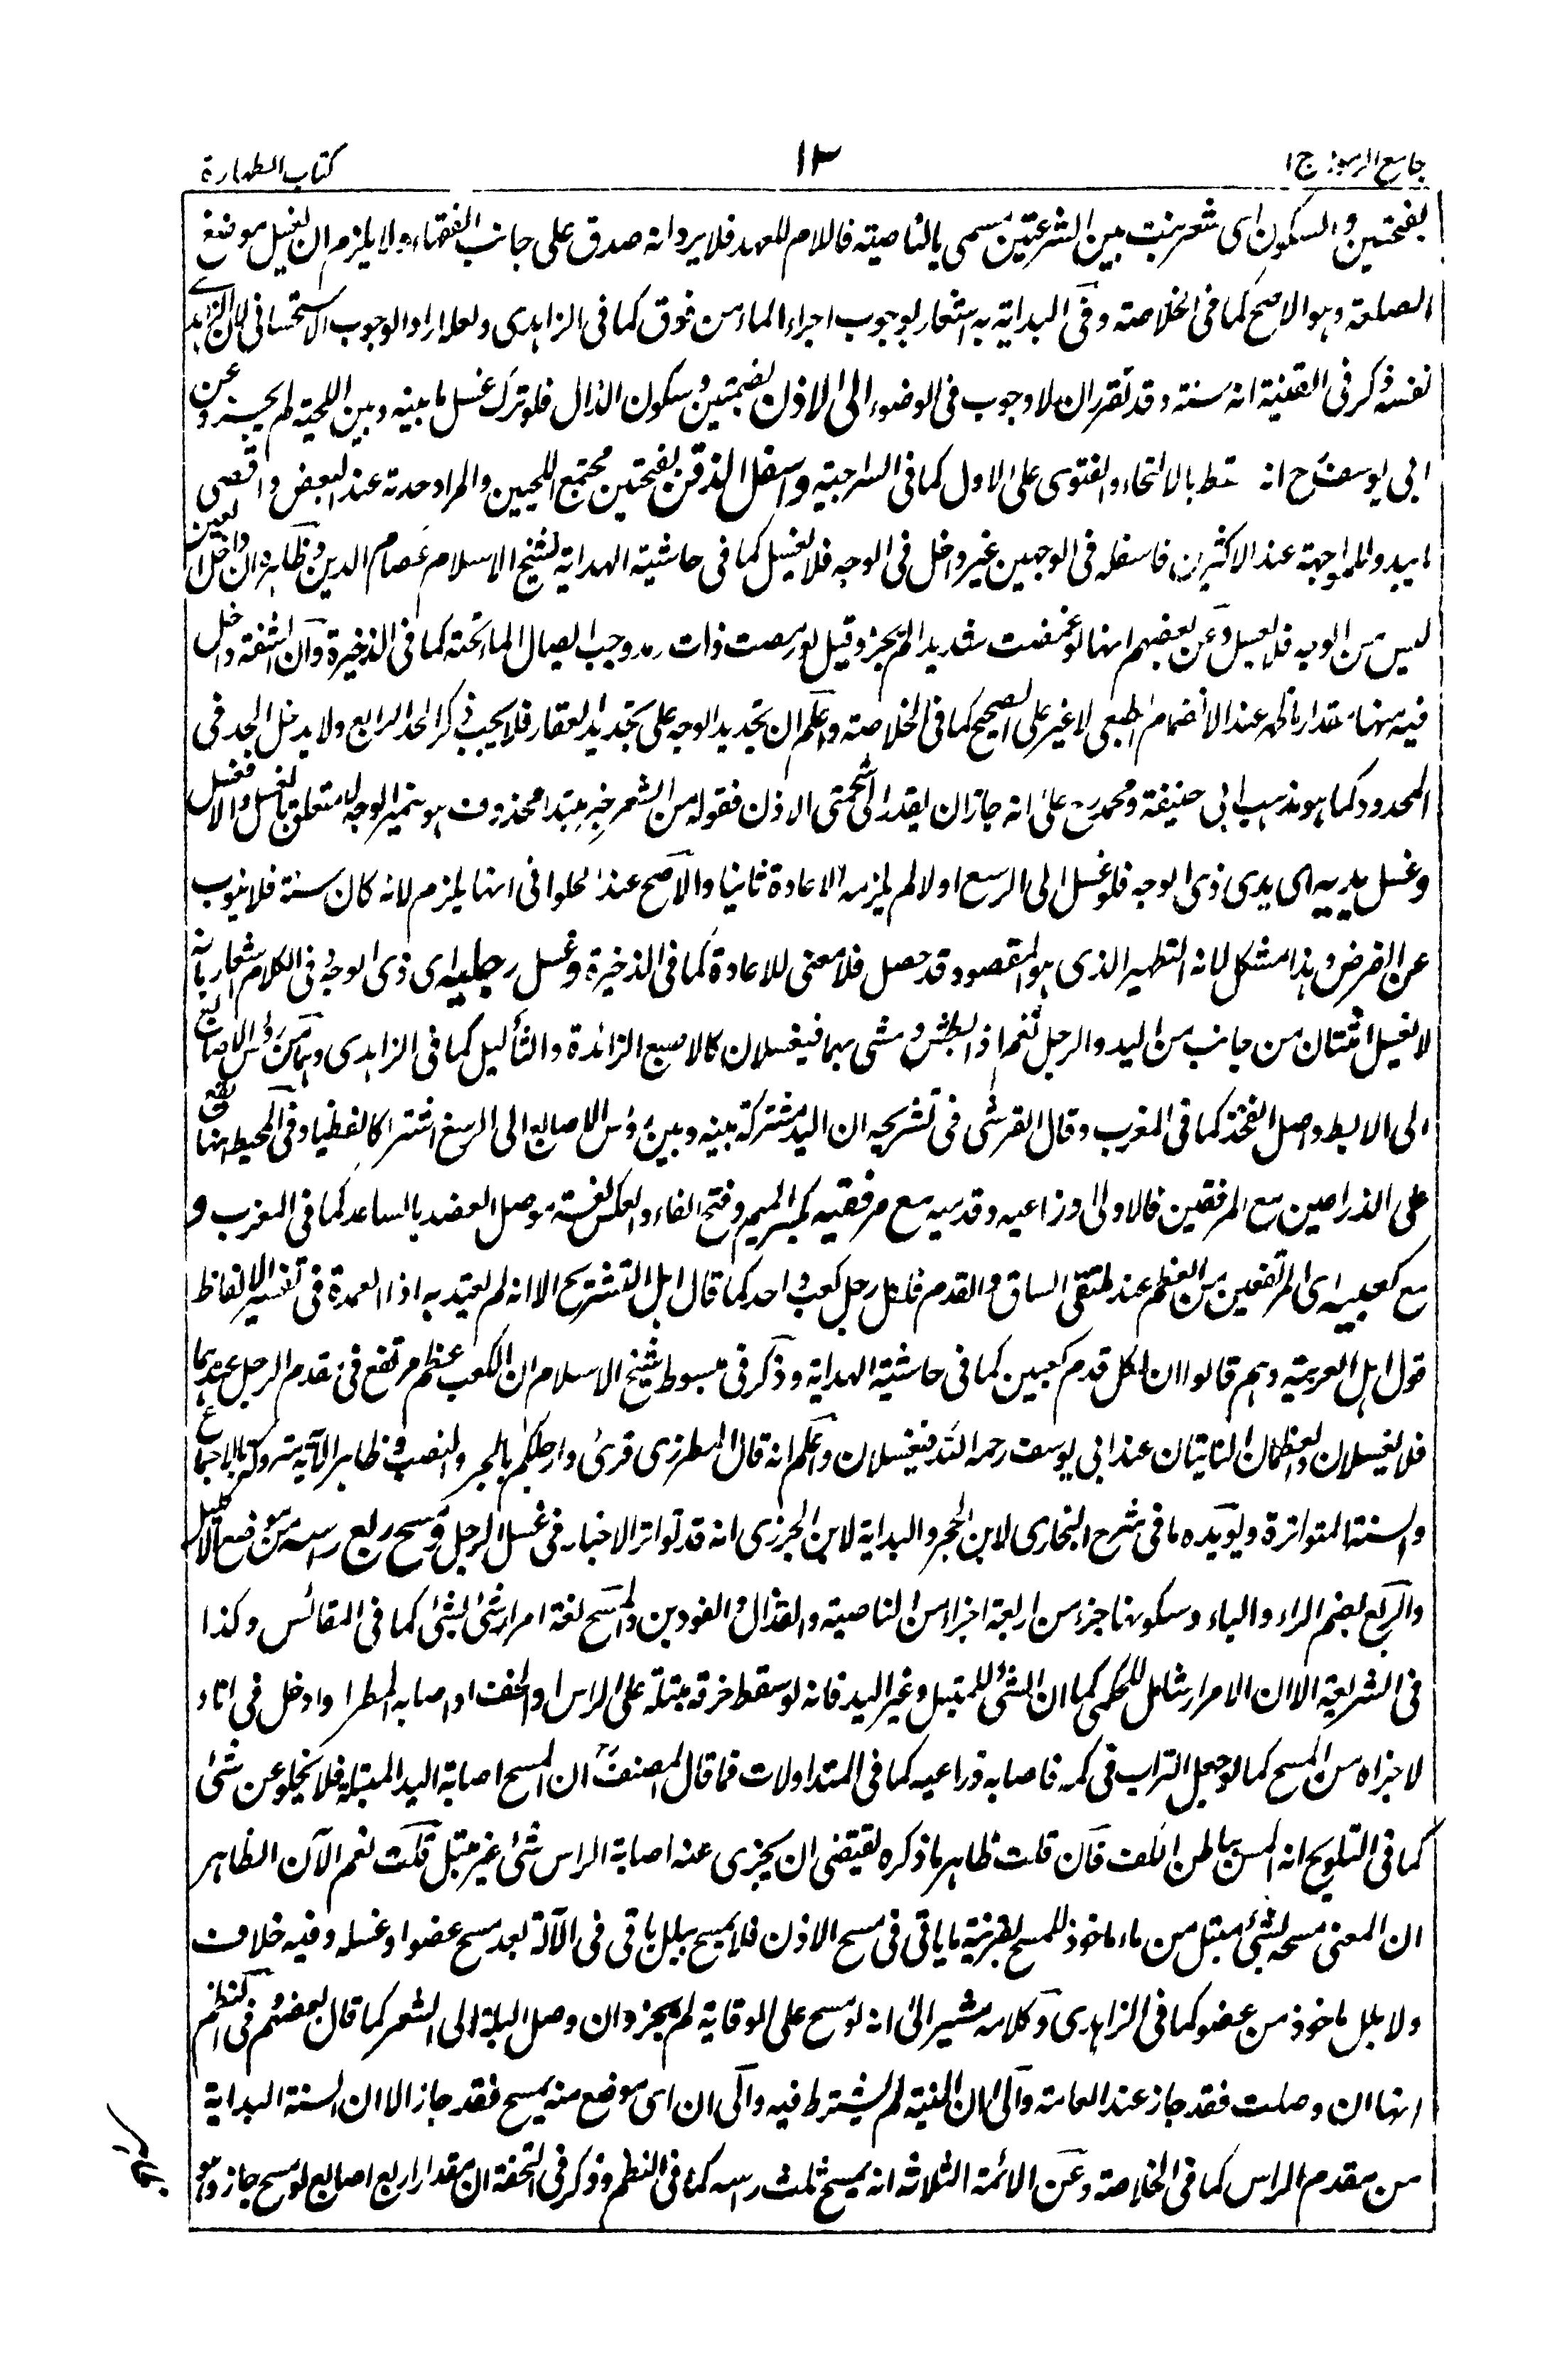 جامع الرموز ج ١
١٣
كتاب الطهارة
بفتحتين والسكون اى شعر ينبت بين النزعتين يسمى بالناصية فاللام للعهد فلا يرد انه صدق على جانب القفا ولا يلزم ان يغسل موضع
الصلعة وهو الاصح كما فى الخلاصة وفى البداية به اشعار بوجوب اجراء الماء من فوق كما فى الزاهدى ولعله اراد الوجوب الاستحسانى فان الزاهدى
نفسه ذكر فى القنية انه سنة وقد تقرر ان لا وجوب فى الوضوء الى الاذن بضمتين وسكون الذال فلو ترك غسل ما بينه وبين اللحية لم يجز وعن
ابى يوسف رح انه سقط بالالتحاء والفتوى على الاول كما فى السراجية واسفل الذقن بفتحتين مجتمع اللحيين والمراد حدته عند البعض واقصى
ما يبدو للمواجهة عند الاكثرين فاسفله فى الوجهين غير داخل فى الوجه فلا يغسل كما فى حاشية الهداية لشيخ الاسلام عصام الدين وظاهره ان داخل العين
ليس من الوجه فلا يغسل وعن بعضهم انها لو غمضت شديدا لم يجز وقيل لو رمصت ذات رمد وجب ايصال الماء تحته كما فى الذخيرة وان الشفة داخل
فيه منها مقدار ما ظهر عند الانضمام الطبعى لا غير على الصحيح كما فى الخلاصة واعلم ان تحديد الوجه على تحديد العقار فلا يجب ذكر الحد الرابع ولا يدخل الحد فى
المحدود كما هو مذهب ابى حنيفة ومحمد رح على انه جاز ان يقدر الى شحمتى الاذن فقوله من الشعر خبر مبتدأ محذوف هو ضمير الوجه لا متعلق بالغسل والا فغسل
وغسل يديه اى يدى ذى الوجه فلو غسل الى الرسغ اولا لم يلزمه الاعادة ثانيا والاصح عند الحلوانى انها يلزم لانه كان سنة فلا ينوب
عن الفرض وهذا مشكل لانه التطهير الذى هو المقصود وقد حصل فلا معنى للاعادة كما فى الذخيرة وغسل رجليه اى ذى الوجه وفى الكلام اشعار بانه
لا يغسل اثنتان من جانب من اليد والرجل نعم اذا بطش ومشى بهما فيغسلان كالاصبع الزائدة والثآليل كما فى الزاهدى وهما من رؤس الاصابع
الى الابط واصل الفخذ كما فى المغرب وقال القرشى فى تشريحه ان اليد مشتركة بينه وبين رؤس الاصابع الى الرسغ اشتراكا لفظيا وفى المحيط انها تقع
على الذراعين مع المرفقين فالاولى وذراعيه وقدميه مع مرفقيه بكسر الميم وفتح الفاء والعكس لغة موصل العضد بالساعد كما فى المغرب و
مع كعبيه اى المرتفعين من العظم عند ملتقى الساق والقدم فلكل رجل كعب واحد كما قال اهل التشريح الا انه لم يعتد به اذ العمدة فى تفسير الالفاظ
قول اهل العربية وهم قالوا ان لكل قدم كعبين كما فى حاشية الهداية وذكر فى مبسوط شيخ الاسلام ان الكعب عظم مرتفع فى مقدم الرجل عندهما
فلا يغسلان والعظمان الناتيان عند ابى يوسف رحمه الله فيغسلان واعلم انه قال المطرزى قرئ وارجلكم بالجر والنصب وظاهر الآية متروكة بالاجماع
والسنة المتواترة ويؤيده ما فى شرح البخارى لابن الحجر والبداية لابن الجزرى انه قد تواتر الاخبار فى غسل الرجل ومسح ربع راسه من موضع الاكليل
والربع بضم الراء والباء وسكونها جزء من اربعة اجزاء من الناصية والقذال والفودين والمسح لغة امرار شئ بشئ كما فى المقائس وكذا
فى الشريعة الا ان الامرار شامل للحكمى كما ان الشئ للمبتل وغير اليد فانه لو سقط خرقة مبتلة على الراس او الخف او اصابه المطر او ادخل فى اناء
لاجزاه من المسح كما لو جعل التراب فى كمه فاصابه ذراعيه كما فى المتداولات فما قال المصنف ان المسح اصابة اليد المبتلة فلا يخلو عن شئ
كما فى التلويح انه المس بباطن الكف فان قلت ظاهر ما ذكره يقتضى ان يجزى عنه اصابة الراس شئ غير مبتل قلت نعم الآن الظاهر
ان المعنى مسحه بشئ مبتل من ماء ماخوذ للمسح بقرينة ما ياتى فى مسح الاذن فلا يمسح ببلل باقى فى الآلة بعد مسح عضو او غسله وفيه خلاف
ولا بلل ماخوذ من عضو كما فى الزاهدى وكلامه مشير الى انه لو مسح على الوقاية لم يجز وان وصل البلة الى الشعر كما قال بعضهم وفى النظم
انها ان وصلت فقد جاز عند العامة والى ان النية لم يشترط فيه والى ان اى موضع منه يمسح فقد جاز الا ان السنة البداية
من مقدم الراس كما فى الخلاصة وعن الائمة الثلاثة انه يمسح ثلث راسه كما فى النظم وذكر فى التحفة ان مقدار اربع اصابع لو مسح جاز وهو